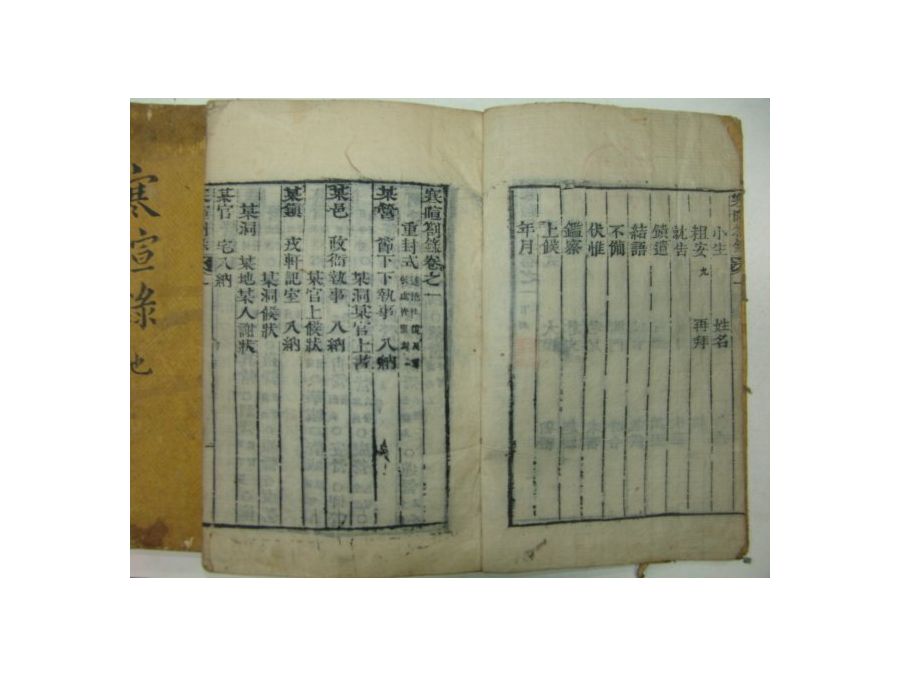 小生 姓名
粗安 九 再拜
就告
饋遺
結語
不備
伏惟
鑑察
上候
年月
寒暄箚錄卷之一
重封式
某營 節下下執事 入納
某洞某官上書
某邑 政衙執事 入納
某官上候狀
某鎭 戎軒記室 入納
某洞候狀
某洞 某地某人謝狀
某官 宅入納
寒暄箚錄
寒宣錄